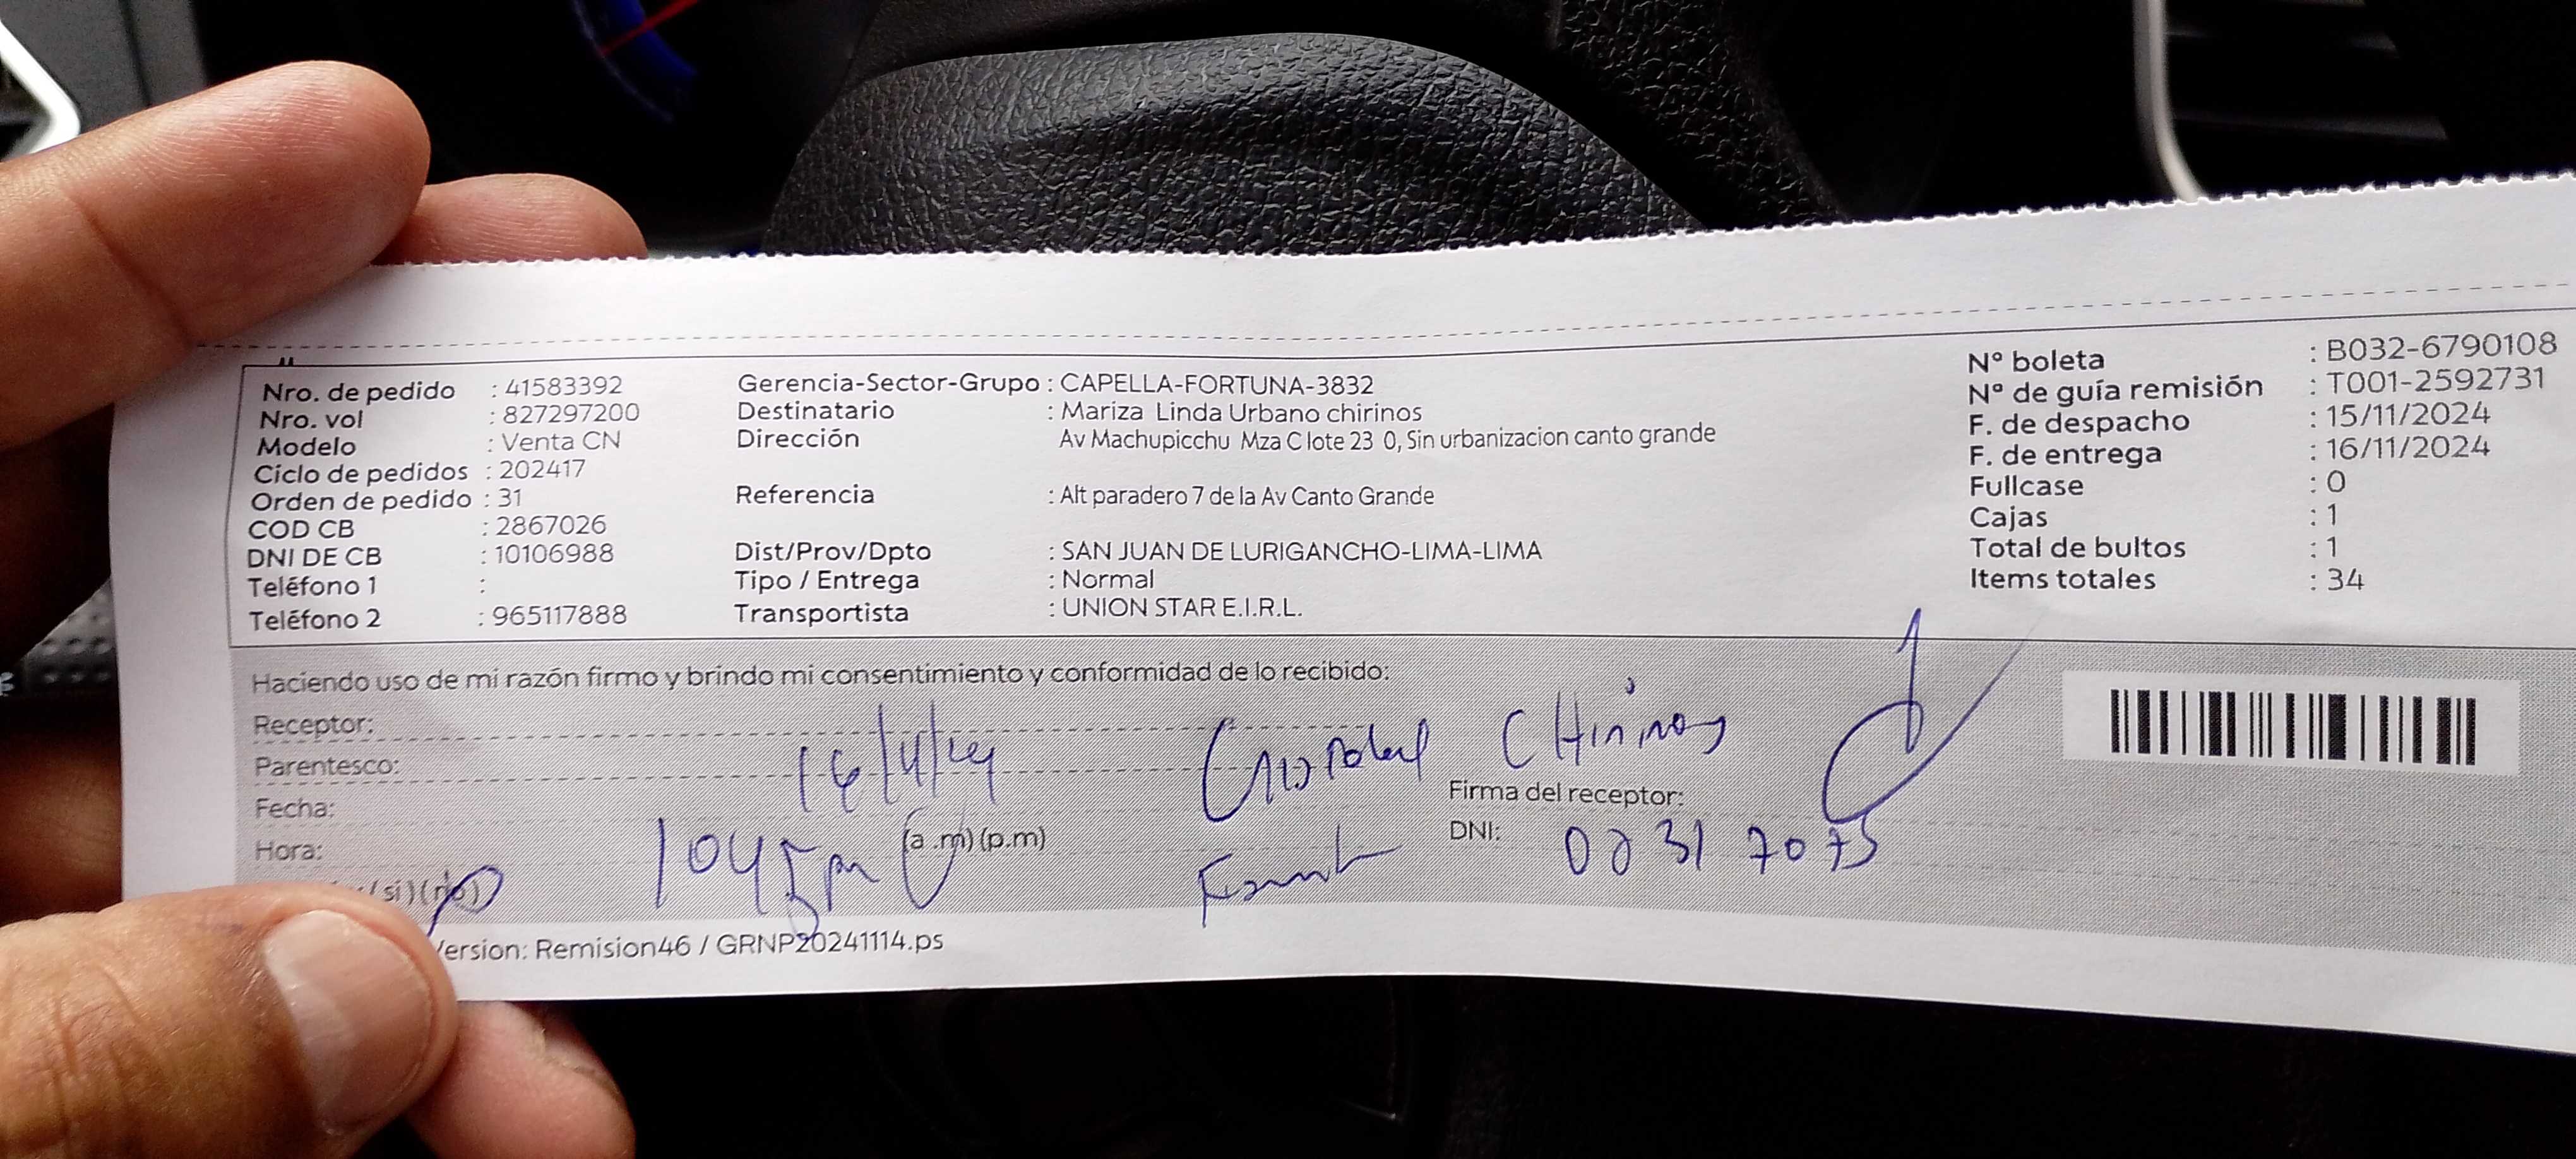 Nro. de pedido : 41583392
Nro. vol : 827297200
Modelo : Venta CN
Ciclo de pedidos : 202417
Orden de pedido : 31
COD CB : 2867026
DNI DE CB : 10106988
Teléfono 1 :
Teléfono 2 : 965117888
Gerencia-Sector-Grupo : CAPELLA-FORTUNA-3832
Destinatario : Mariza Linda Urbano chirinos
Dirección Av Machupicchu Mza C lote 23 0, Sin urbanizacion canto grande
Referencia : Alt paradero 7 de la Av Canto Grande
Dist/Prov/Dpto : SAN JUAN DE LURIGANCHO-LIMA-LIMA
Tipo / Entrega : Normal
Transportista : UNION STAR E.I.R.L.
N° boleta : B032-6790108
N° de guía remisión : T001-2592731
F. de despacho : 15/11/2024
F. de entrega : 16/11/2024
Fullcase : 0
Cajas : 1
Total de bultos : 1
Items totales : 34
Haciendo uso de mi razón firmo y brindo mi consentimiento y conformidad de lo recibido:
Receptor: Chirinos
Parentesco:
Fecha: 16/11/24
Hora: 1045 (a.m) (p.m)
(si) (no)
Firma del receptor:
DNI:
Version: Remision46 / GRNP20241114.ps